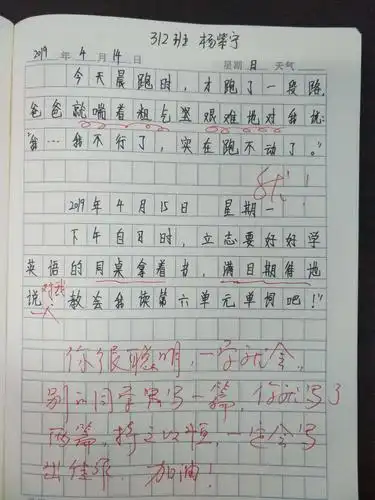 312班 杨荣宁
2019 年 4 月 14 日 星期 日 天气
今天晨跑时，才跑了一段路，
爸爸就喘着粗气坚艰难地对我说：
“我…我不行了，实在跑不动了。”
优！
2019年4月15日 星期一
下午自习时，立志要好好学
英语的同桌拿着书，满目期待地
对我
说“教会我读第六单元单词吧！”
你很聪明，一学就会，
别的同学只写一篇，你就写了
两篇，持之以恒，一定会写
出佳作，加油！